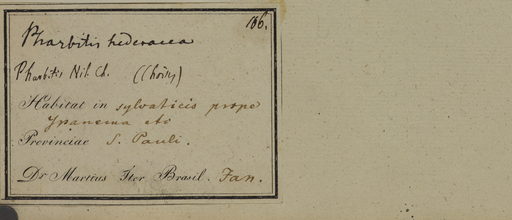 106.
Pharbitis hederacea
Pharbitis Nil. Ch. (Choisy)
Habitat in sylvaticis prope
Ypanema etc
Provinciae S. Pauli.
Dr Martius Iter Brasil. Jan.